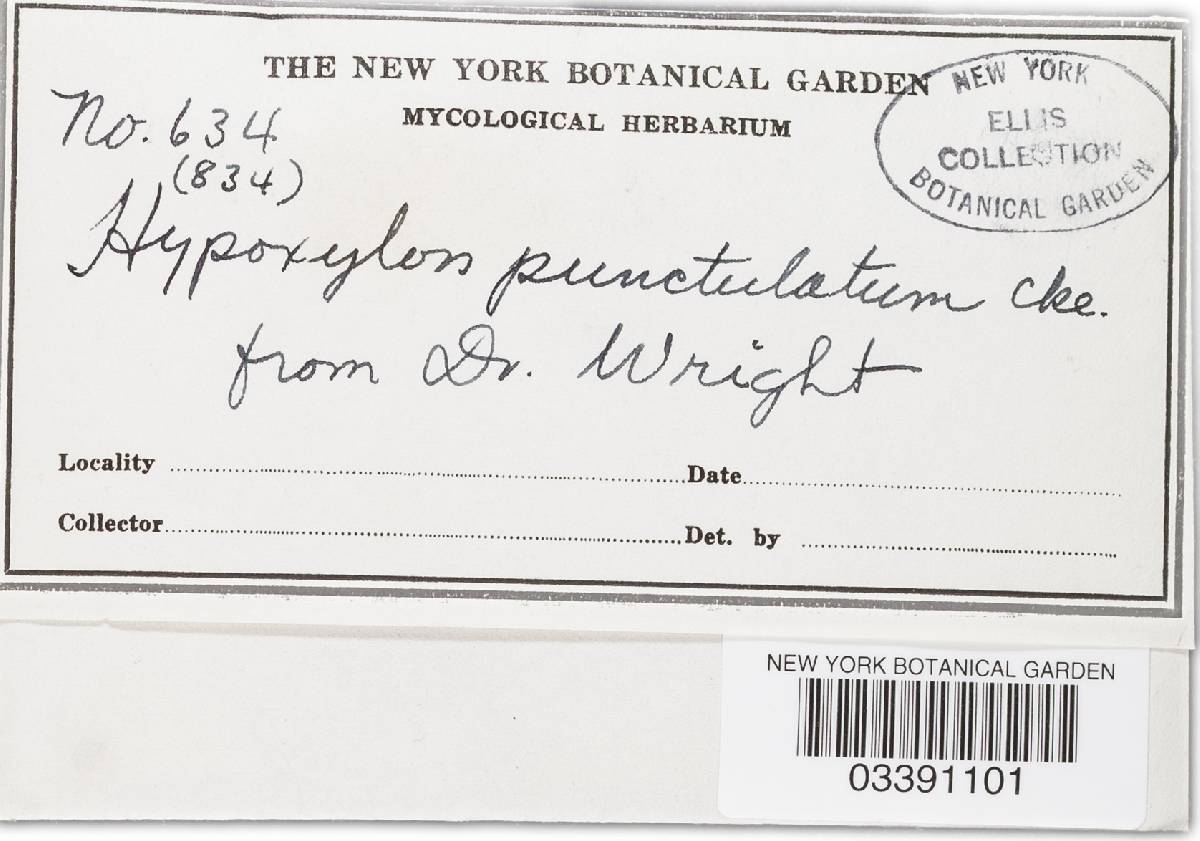 THE NEW YORK BOTANICAL GARDEN
MYCOLOGICAL HERBARIUM
NEW YORK
ELLIS
COLLECTION
BOTANICAL GARDEN
No. 634
(834)
Hypoxylon punctulatum Cke.
from Dr. Wright
Locality
Date
Collector
Det. by
NEW YORK BOTANICAL GARDEN
03391101